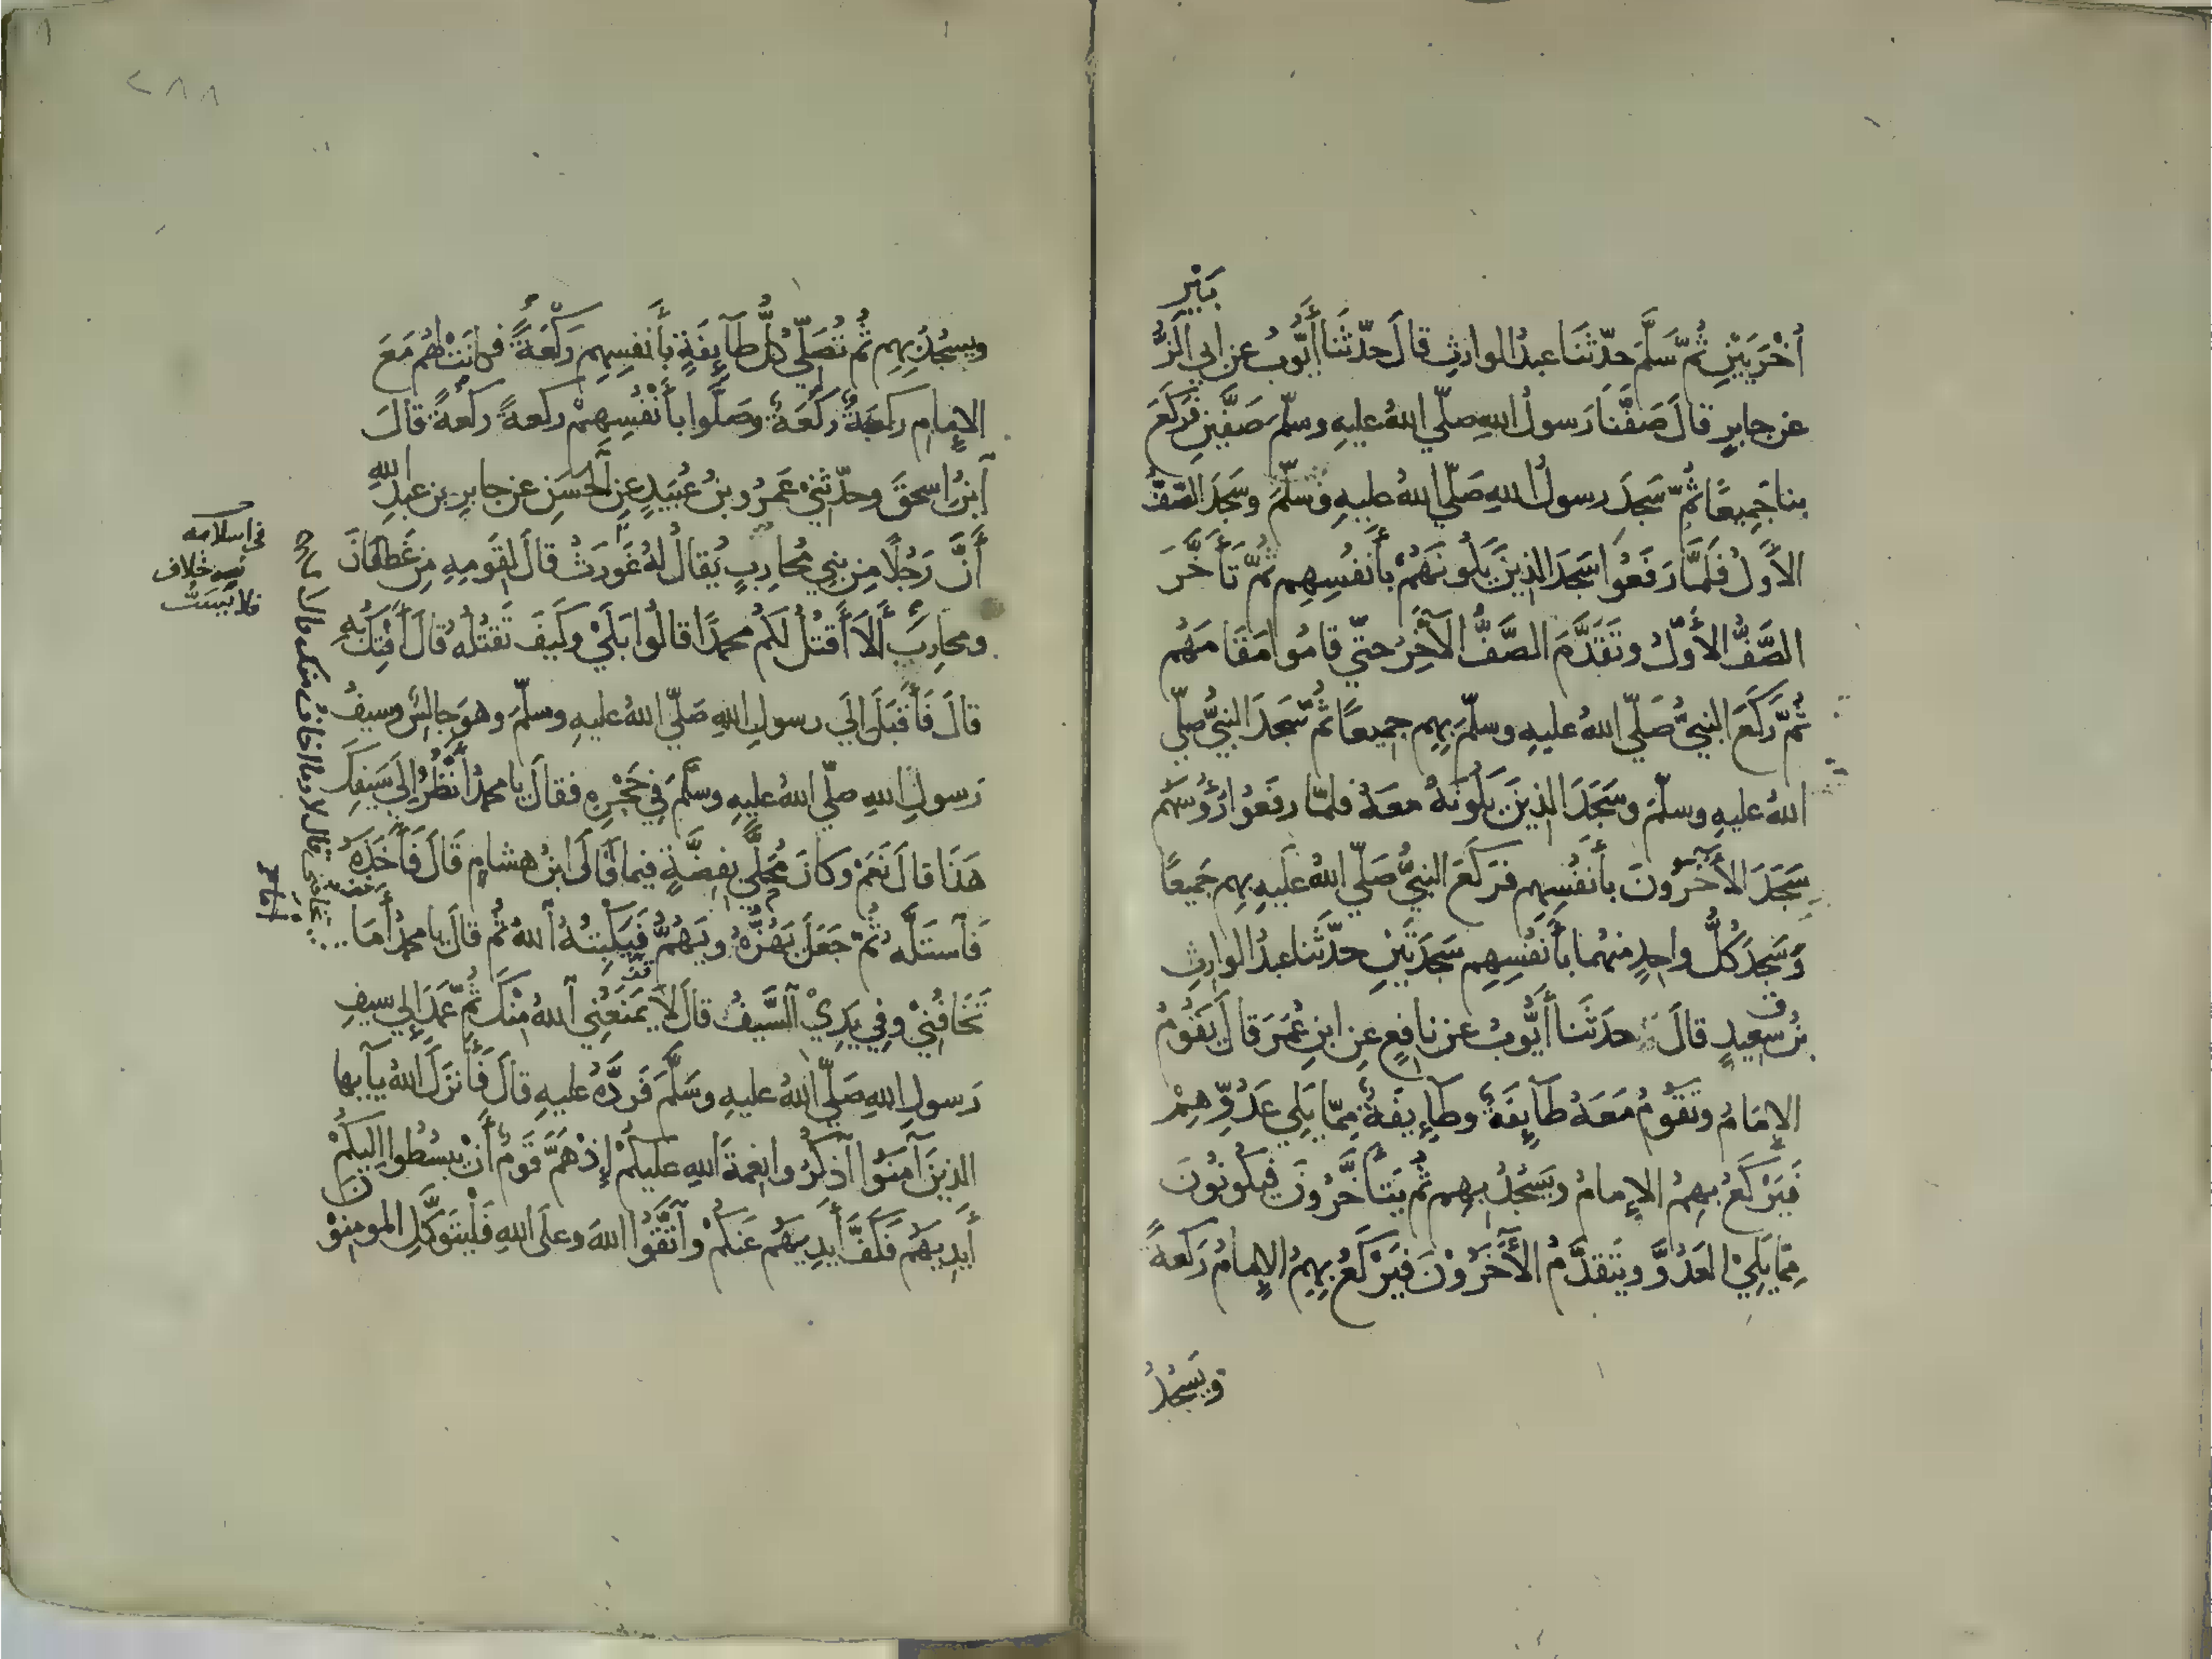 أُخْرَيَيْنِ ثُمَّ سَلَّمَ حدّثَنَا عبدُ الوارثِ قالَ حدّثَنا أَيُّوبُ عن أبي الزُّ
بَيْرِ
عن جابرٍ قالَ صَفَّنَا رَسولُ اللهِ صلّي اللهُ عليهِ وسلّمَ صَفَّينِ فَرَكَعَ
بنا جَمِيعًا ثُمَّ سَجَدَ رسولُ اللهِ صَلّي اللهُ عليهِ وسلّمَ وسَجَدَ الصَّفُّ
الأَوّلُ فَلَمَّا رَفَعُوا سَجَدَ الذِينَ يَلُونَهُمْ بأَنفُسِهِم ثُمَّ تَأَخَّرَ
الصَّفُّ الأَوّلُ وتَقَدَّمَ الصَّفُّ الآخِرُ حتّي قامُوا مَقَامَهُم
ثُمَّ رَكَعَ النبيُّ صَلّي اللهُ عليهِ وسلّمَ بِهِم جميعًا ثُمَّ سَجَدَ النبيُّ صلّي
اللهُ عليهِ وسلّمَ وسَجَدَ الذِينَ يَلُونَهُ معَهُ فلمّا رفَعُوا رُؤُسَهُم
سَجَدَ الآخَرُونَ بأَنفُسِهِم فَرَكَعَ النبيُّ صَلّي اللهُ عَلَيهِ بهِم جَمِيعًا
وَسَجَدَ كُلُّ واحِدٍ منهُما بأَنفُسِهِم سَجدَتَيْنِ حدّثَنا عبدُ الوارثِ
بنُ سعِيدٍ قالَ حدَثَنا أَيُّوبُ عن نافِعٍ عنِ ابنِ عُمَرَ قالَ يَقُومُ
الإمَامُ وتَقُومُ مَعَهُ طَآئِفَةٌ وطآئِفَةٌ مِمّا يَلِي عَدُوِّهِمْ
فَيَرْكَعُ بهِمُ الإمامُ ويَسْجُدُ بهِم ثُمَّ يَتَأَخَّرُونَ فيَكُونُونَ
مِمّا يَلِيْ العَدُوَّ ويَتقدَّمُ الآخَرُوْنَ فيَرْكَعُ بهِمُ الإمامُ رَكعَةً
ويَسْجُدُ
٢٨٨
ويسجُدُ بِهِم ثُمَّ تُصَلِّي كُلُّ طآئِفَةٍ بأَنفسِهِم رَكْعَةً فكانَتْ لهُم مَعَ
الإمامِ ركعَةٌ رَكْعَةٌ وصَلَّوا بأَنْفُسِهِمْ ركعةً ركعةً قالَ
ابنُ اسحقَ وحدّثنِيْ عَمرُو بنُ عُبَيدٍ عنِ الحَسَنِ عن جابرِ بنِ عبدِ اللهِ
أَنَّ رَجُلًا مِن بنِي مُحارِبٍ يُقالُ لهُ غَورَثُ قالَ لِقَومِهِ مِن غَطَفَانَ
ومحارِبَ أَلَا أَقتُلُ لكُم محمدًا قالُوا بَلَيْ وكَيفَ تَقتُلُهُ قالَ أَفْتِكُ بِهِ
قالَ فَأَقبَلَ إلَي رسولِ اللهِ صَلّي اللهُ عليهِ وسلّمَ وهوَ جالِسٌ وسيفُ
رَسولِ اللهِ صلّي اللهُ عليهِ وسلَّمَ فِي حَجْرِهِ فقالَ يا محمدُ أَنْظُرُ إلَي سَيفِكَ
هَذَا قالَ نَعَمْ وكانَ مُحَلًّي بِفِضَّةٍ فيما قالَ ابنُ هشامٍ قَالَ فَأَخَذَهُ
فَآستَلَّهُ ثُمَّ جَعَلَ يَهُزُّهُ ويَهُمُّ فيَكْبِتُهُ اللهُ ثُمَّ قالَ يا محمدُ أَمَا
تَخَافُنِيْ وفِي يَدِيْ السَّيفُ قالَ لَا يَمنَعُنِي اللهُ مِنْكَ ثُمَّ عَمَدَ إلي سيفِ
رَسولِ اللهِ صَلّي اللهُ عليهِ وسَلَّمَ فَرَدَّهُ عليهِ قالَ فَأَنزَلَ اللهُ يآ أيها
الذينَ آمَنُوا اذكرُوا نِعمةَ اللهِ علَيكُمْ إذْ هَمَّ قَومٌ أَنْ يبسُطُوا إليكُمْ
أَيدِيَهُم فَكَفَّ أَيدِيَهُم عَنكُمْ وآتَّقُوا اللهَ وعلَى اللهِ فَلْيتوَكَّلِ المومِنوْنَ
في اسلامه
خلاف